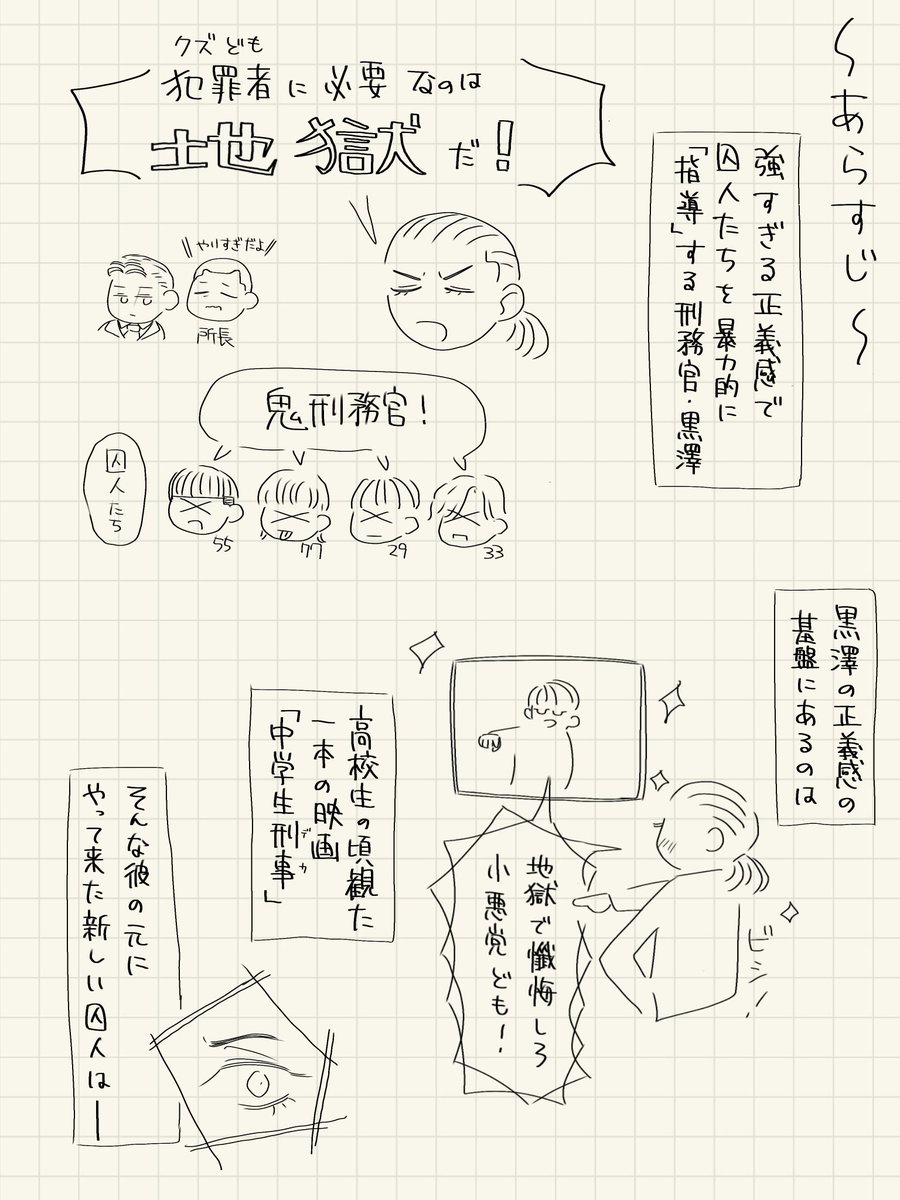 〜あらすじ〜
強すぎる正義感で
囚人たちを暴力的に
「指導」する刑務官・黒澤
クズども
犯罪者に必要なのは
地獄だ!
やりすぎだよ
所長
鬼刑務官!
囚人たち
55
77
29
33
黒澤の正義感の
基盤にあるのは
地獄で懺悔しろ
小悪党ども!
ビシッ
高校生の頃観た
一本の映画
「中学生刑事」
デカ
そんな彼の元に
やって来た新しい囚人は―